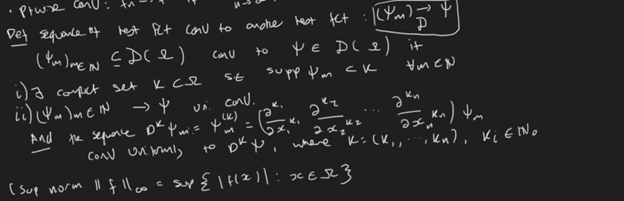 • ptwise conv: fn →
Def sequence of test fct conv to another test fct : (Ψm) →D Ψ
(Ψm)m∈ℕ ⊆ D(Ω) conv to Ψ ∈ D(Ω) if
i) ∃ compact set K ⊂ Ω st supp Ψm ⊂ K ∀m∈ℕ
ii) (Ψm)m∈ℕ → Ψ uni conv.
And the sequence D^k Ψm = Ψm^(k) = (∂^k₁/∂x₁^k₁ ∂^k₂/∂x₂^k₂ ... ∂^kn/∂xn^kn) Ψm
conv uniformly to D^k Ψ, where k = (k₁, ..., kn), ki ∈ ℕ₀
(sup norm ‖f‖∞ = sup{|f(x)| : x∈Ω}